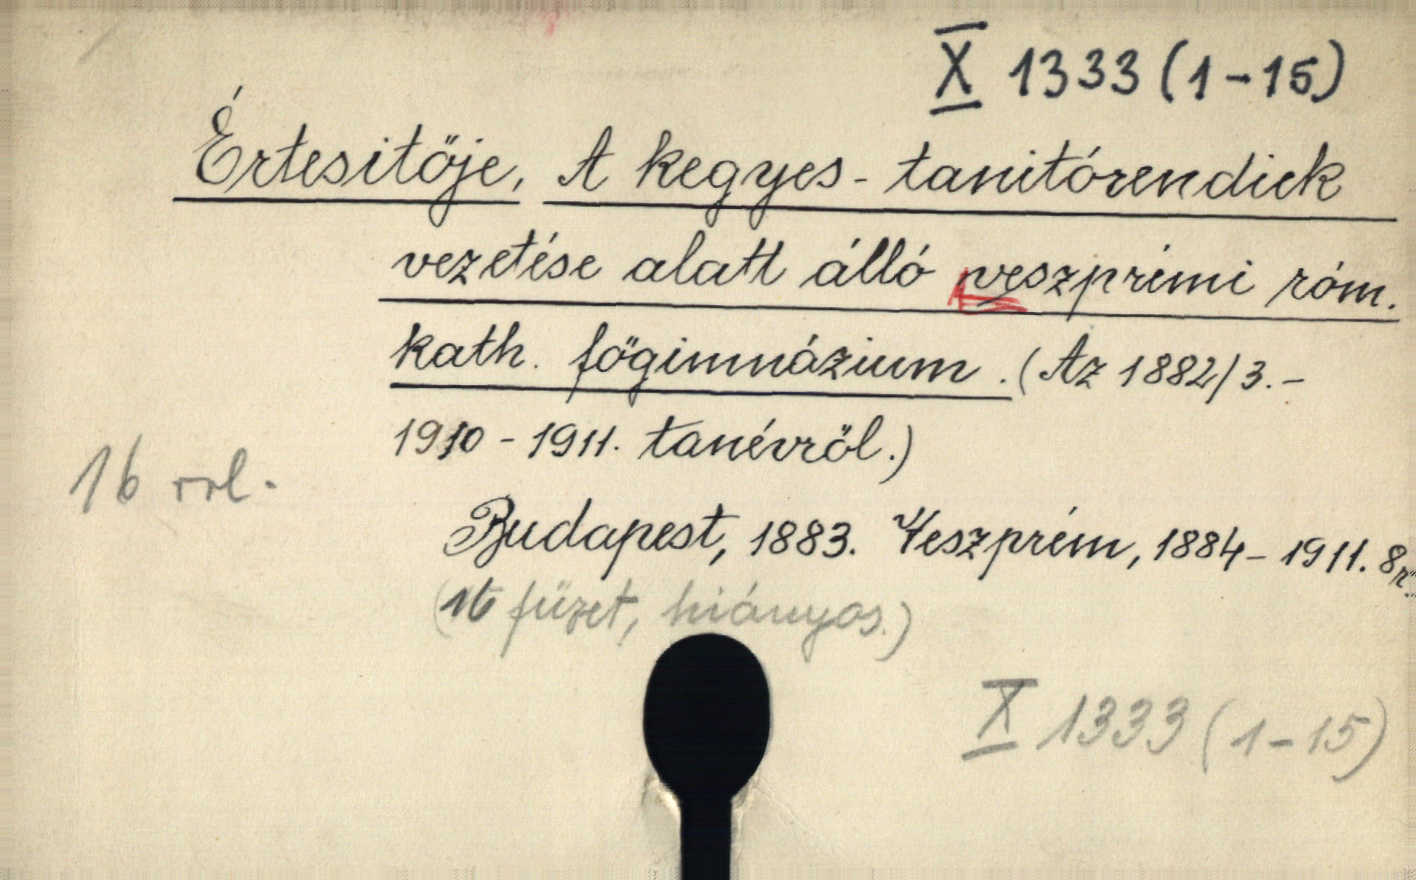 X 1333 (1-15)
Értesitője, A kegyes-tanitórendiek
vezetése alatt álló veszprémi róm.
kath. főgimnázium. (Az 1882/3.-
1910-1911. tanévről.)
16 vol.
Budapest, 1883. Veszprém, 1884-1911. 8r
(16 füzet, hiányos.)
X 1333 (1-15)